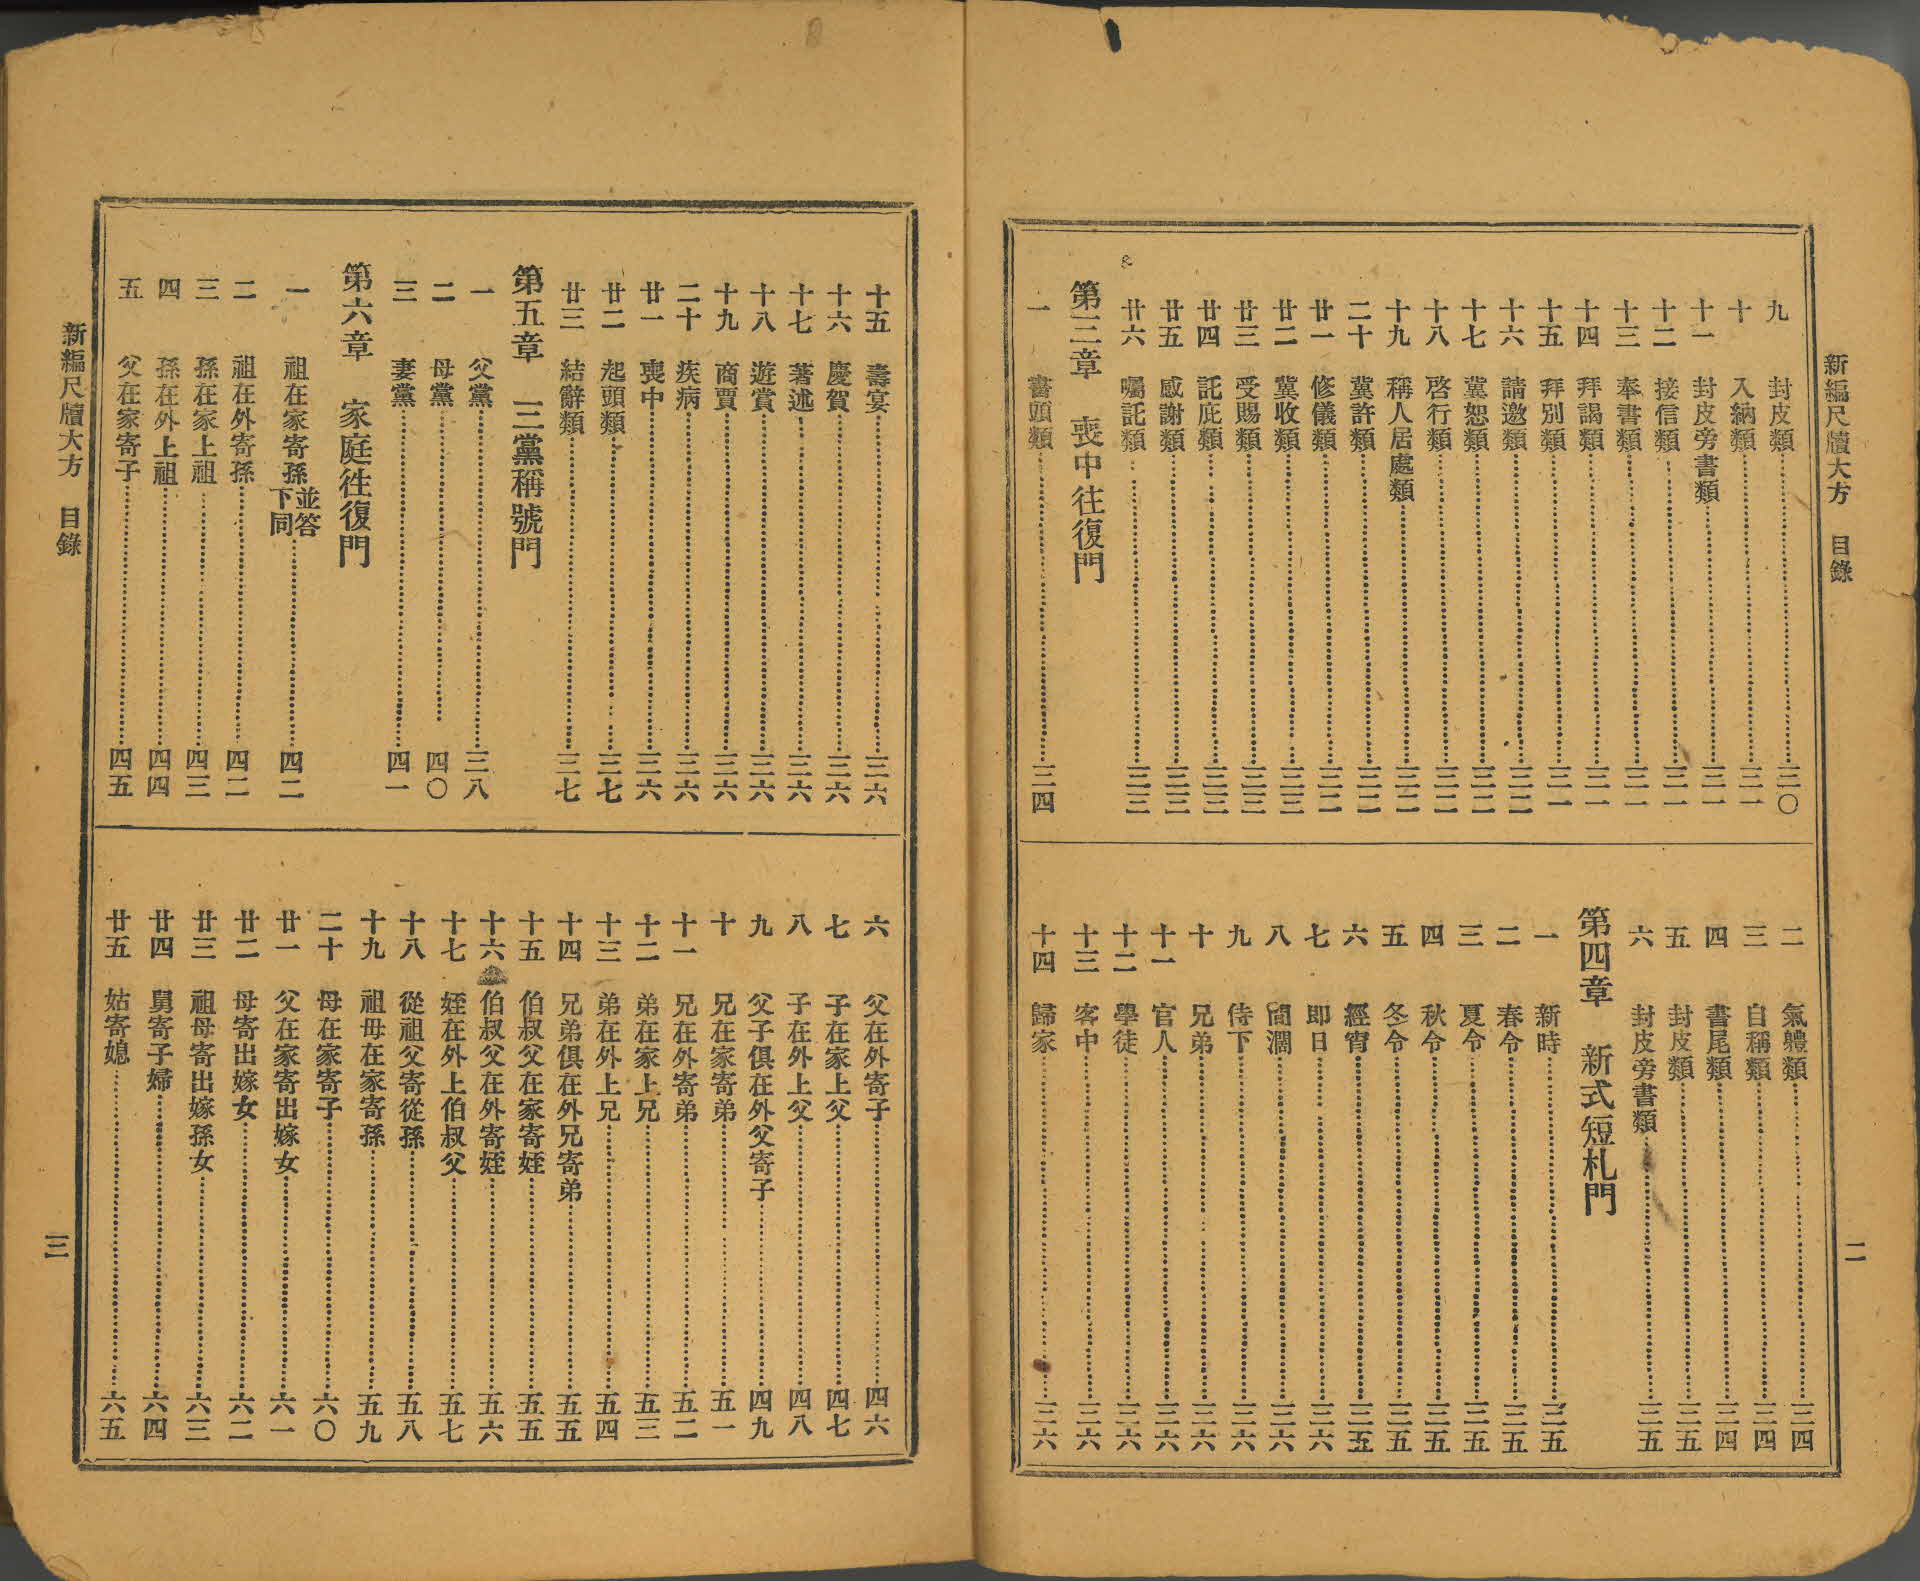 新編尺牘大方　目錄
二
九　封皮類……三〇
十　入納類……三一
十一　封皮旁書類……三一
十二　接信類……三一
十三　奉書類……三一
十四　拜謁類……三一
十五　拜別類……三一
十六　請邀類……三二
十七　冀恕類……三二
十八　啓行類……三二
十九　稱人居處類……三二
二十　冀許類……三二
廿一　修儀類……三二
廿二　冀收類……三三
廿三　受賜類……三三
廿四　託庇類……三三
廿五　感謝類……三三
廿六　囑託類……三三
第三章　喪中往復門
一　書頭類……三四
二　氣體類……三四
三　自稱類……三四
四　書尾類……三四
五　封皮類……三五
六　封皮旁書類……三五
第四章　新式短札門
一　新時……三五
二　春令……三五
三　夏令……三五
四　秋令……三五
五　冬令……三五
六　經宵……三五
七　即日……三六
八　間濶……三六
九　侍下……三六
十　兄弟……三六
十一　官人……三六
十二　學徒……三六
十三　客中……三六
十四　歸家……三六
十五　壽宴……三六
十六　慶賀……三六
十七　著述……三六
十八　遊賞……三六
十九　商賈……三六
二十　疾病……三六
廿一　喪中……三六
廿二　起頭類……三七
廿三　結辭類……三七
第五章　三黨稱號門
一　父黨……三八
二　母黨……四〇
三　妻黨……四一
第六章　家庭往復門
一　祖在家寄孫並答下同……四二
二　祖在外寄孫……四二
三　孫在家上祖……四三
四　孫在外上祖……四四
五　父在家寄子……四五
六　父在外寄子……四六
七　子在家上父……四七
八　子在外上父……四八
九　父子俱在外父寄子……四九
十　兄在家寄弟……五一
十一　兄在外寄弟……五二
十二　弟在家上兄……五三
十三　弟在外上兄……五四
十四　兄弟俱在外兄寄弟……五五
十五　伯叔父在家寄姪……五五
十六　伯叔父在外寄姪……五六
十七　姪在外上伯叔父……五七
十八　從祖父寄從孫……五八
十九　祖母在家寄孫……五九
二十　母在家寄子……六〇
廿一　父在家寄出嫁女……六一
廿二　母寄出嫁女……六二
廿三　祖母寄出嫁孫女……六三
廿四　舅寄子婦……六四
廿五　姑寄媳……六五
新編尺牘大方　目錄
三